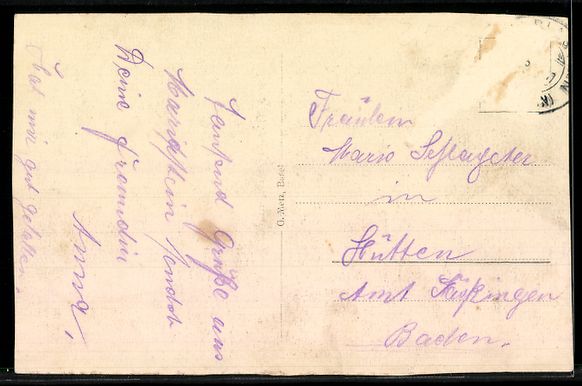 Tausend Grüße aus
Mariastein sendet
Deine Freundin
Anna,
Hat mir gut gefallen.
G. Metz, Basel
Fräulein
Marie Schlageter
in
Hütten
Amt Säckingen
Baden.